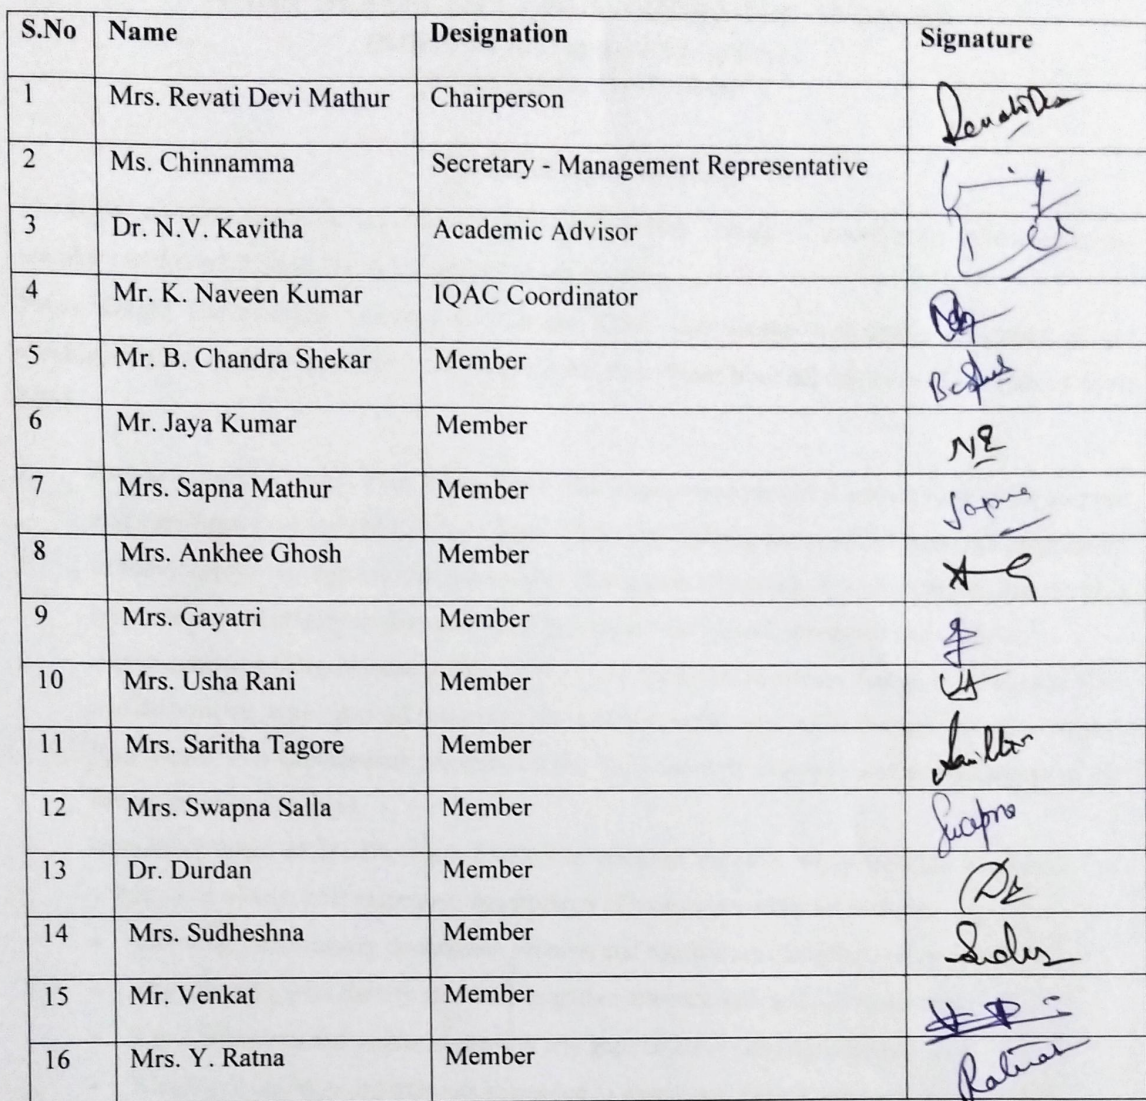 S.No Name Designation Signature
1 Mrs. Revati Devi Mathur Chairperson
2 Ms. Chinnamma Secretary - Management Representative
3 Dr. N.V. Kavitha Academic Advisor
4 Mr. K. Naveen Kumar IQAC Coordinator
5 Mr. B. Chandra Shekar Member
6 Mr. Jaya Kumar Member
7 Mrs. Sapna Mathur Member Sapna
8 Mrs. Ankhee Ghosh Member
9 Mrs. Gayatri Member
10 Mrs. Usha Rani Member
11 Mrs. Saritha Tagore Member
12 Mrs. Swapna Salla Member Swapna
13 Dr. Durdan Member
14 Mrs. Sudheshna Member
15 Mr. Venkat Member
16 Mrs. Y. Ratna Member